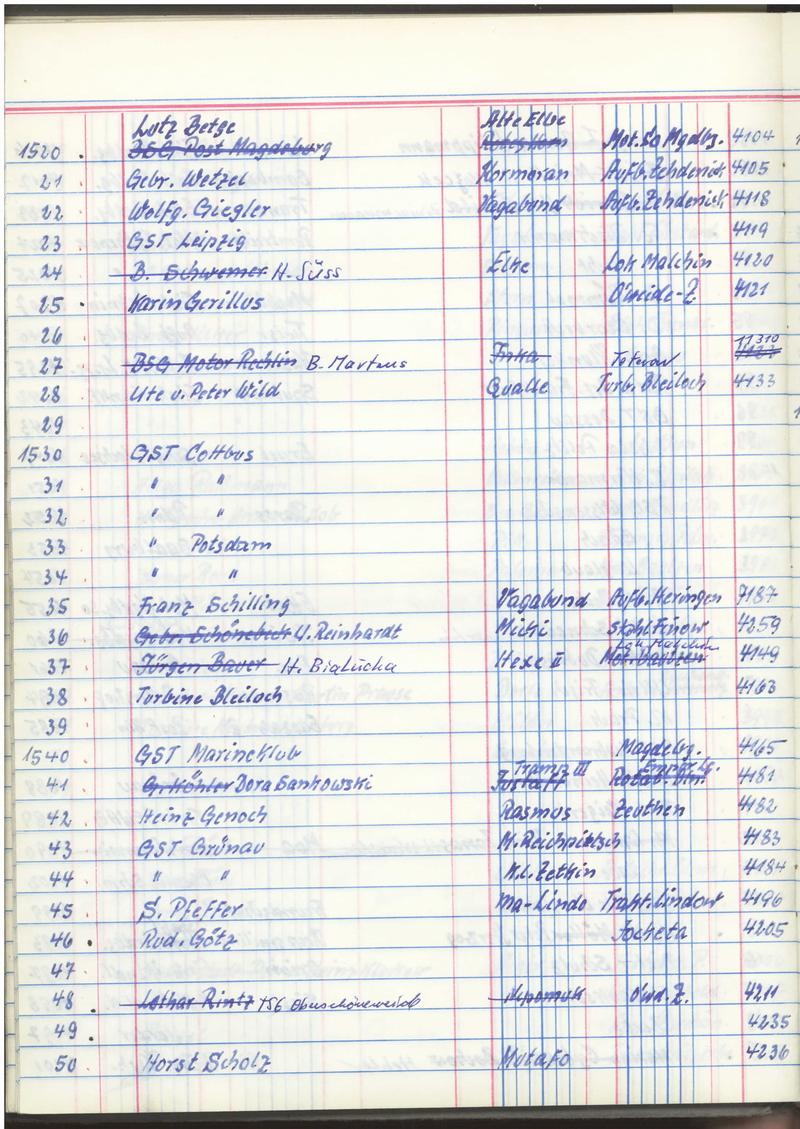 Lutz Betge Alte Elbe
1520 . BSG Post Magdeburg Mot. So Mgdbg. 4104
21 . Gebr. Wetzel Kormoran Aufb. Zehdenick 4105
22 . Wolfg. Giegler Vagabund Aufb. Zehdenick 4118
23 . GST Leipzig 4119
24 . B. Schwemer H. Süss Elke Lok Malchin 4120
25 . Karin Gerillus O'weide-Z. 4121
26 .
11310
27 . BSG Motor Rechlin B. Martens Inka Teterow
28 . Ute u. Peter Wild Qualle Turb. Bleiloch 4133
29 .
1530 . GST Cottbus
31 . " "
32 . " "
33 . " Potsdam
34 . " "
35 . Franz Schilling Vagabund Aufb. Heringen 7187
36 . Gebr. Schönebeck U. Reinhardt Micki Stahl Finow 4259
37 . Jürgen Bauer H. Bialucha Hexe II Mot. Bautzen 4149
38 . Turbine Bleiloch 4163
39 .
1540 . GST Marineklub Magdebg. 4165
Tramp III
41 . G. Köhler Dora Sankowski Rotat. Bln. 4181
42 . Heinz Genoch Rasmus Zeuthen 4182
43 . GST Grünau M. Reichpietsch 4183
44 . " " K.l. Zetkin 4184
45 . S. Pfeffer Ma-Lindo Trakt. Lindow 4196
46 . Rud. Götz Jocketa 4205
47 .
48 . Lothar Rintz TSG Oberschöneweide Nepomuk O'wd. Z. 4211
49 . 4235
50 . Horst Scholz Mutafo 4236